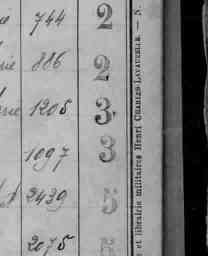 744 2
886 2
1205 3
1097 3
2439 5
2075 5
e et librairie militaires Henri CHARLES-LAVAUZELLE. — N.